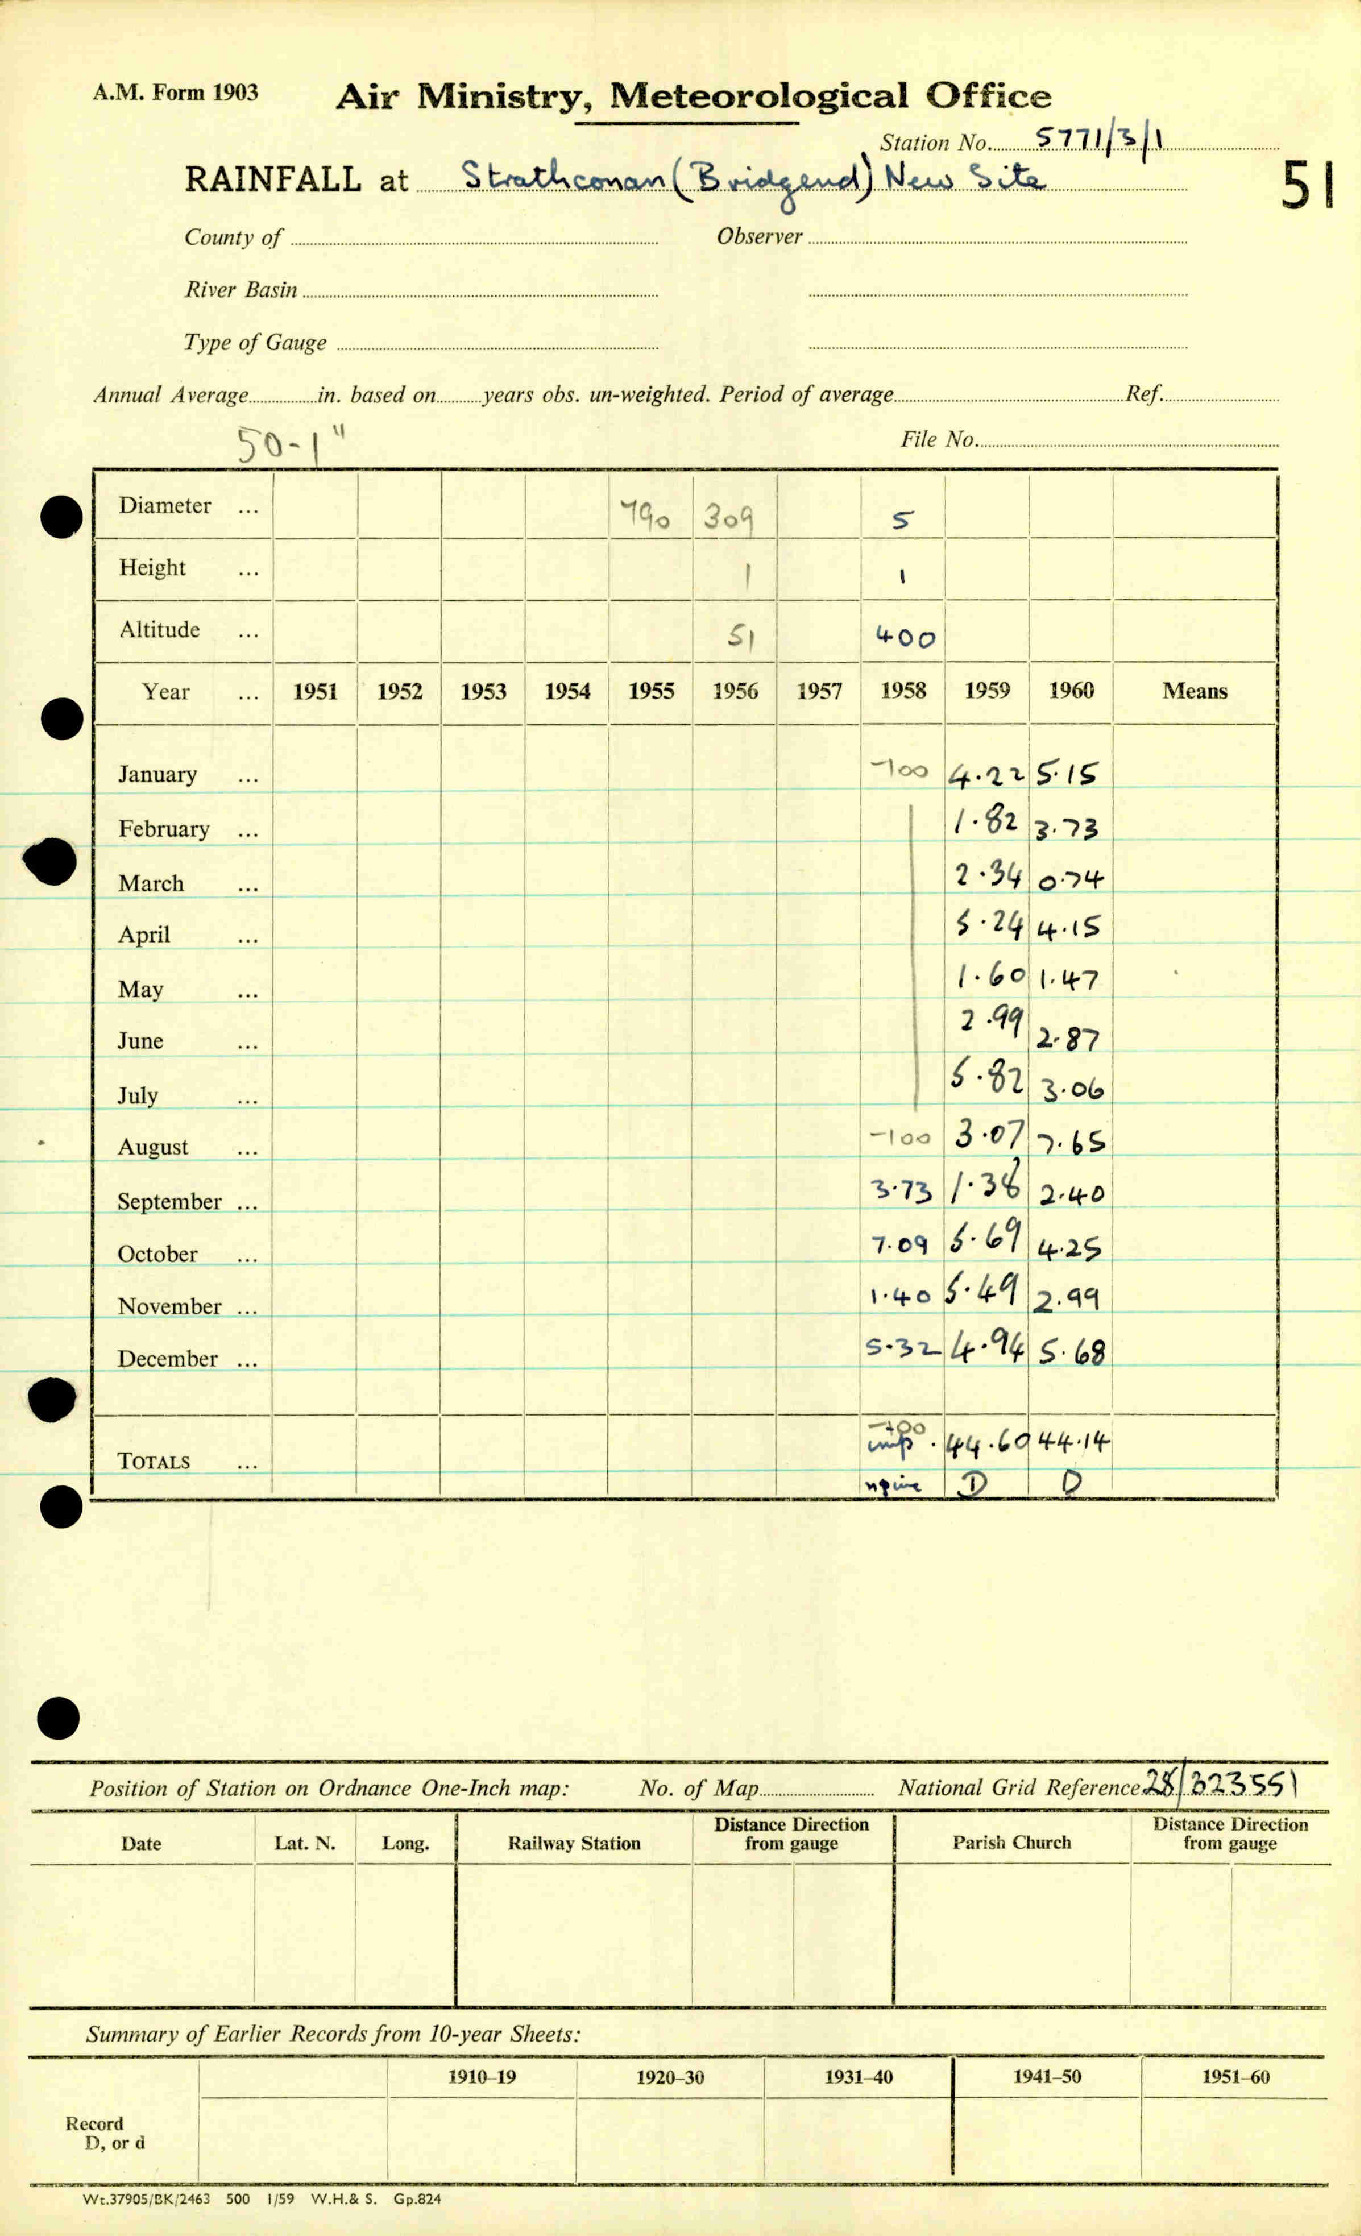 A.M. Form 1903 Air Ministry, Meteorological Office
Station No. 5771/3/1
RAINFALL at Strathconan (Bridgend) New Site 51
County of Observer
River Basin
Type of Gauge
Annual Average in. based on years obs. un-weighted. Period of average Ref.
50-1" File No.
Diameter ... 790 309 5
Height ... 1 1
Altitude ... 51 400
Year ... 1951 1952 1953 1954 1955 1956 1957 1958 1959 1960 Means
January ... -100 4.22 5.15
February ... 1.82 3.73
March ... 2.34 0.74
April ... 5.24 4.15
May ... 1.60 1.47
June ... 2.99 2.87
July ... 5.82 3.06
August ... -100 3.07 7.65
September ... 3.73 1.38 2.40
October ... 7.09 5.69 4.25
November ... 1.40 5.49 2.99
December ... 5.32 4.94 5.68
-100
TOTALS ... imp. 44.60 44.14
D D
Position of Station on Ordnance One-Inch map: No. of Map National Grid Reference 28/323551
Date Lat. N. Long. Railway Station Distance Direction from gauge Parish Church Distance Direction from gauge
Summary of Earlier Records from 10-year Sheets:
1910-19 1920-30 1931-40 1941-50 1951-60
Record
D, or d
Wt.37905/BK/2463 500 1/59 W.H.& S. Gp.824